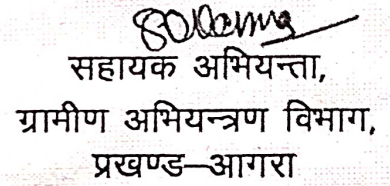 सहायक अभियन्ता,
ग्रामीण अभियन्त्रण विभाग,
प्रखण्ड–आगरा